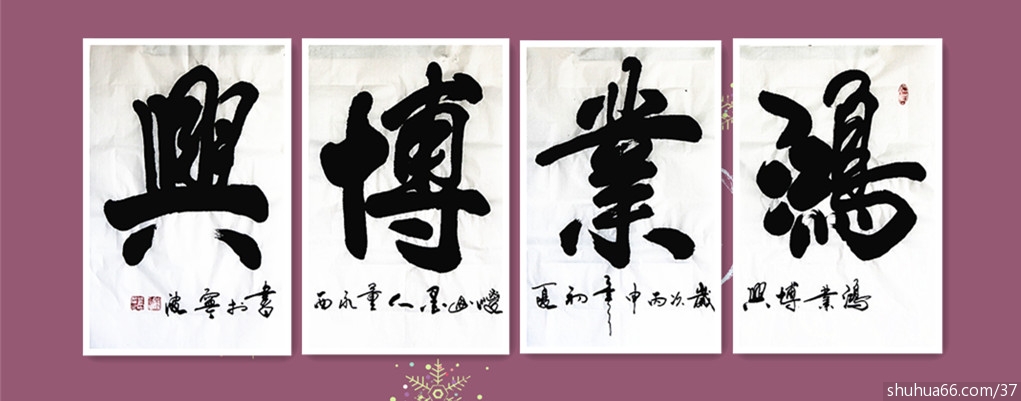 鴻業博興
鴻業博興
歲次丙申年初夏
墨人董永西
書於寧波
shuhua66.com/37